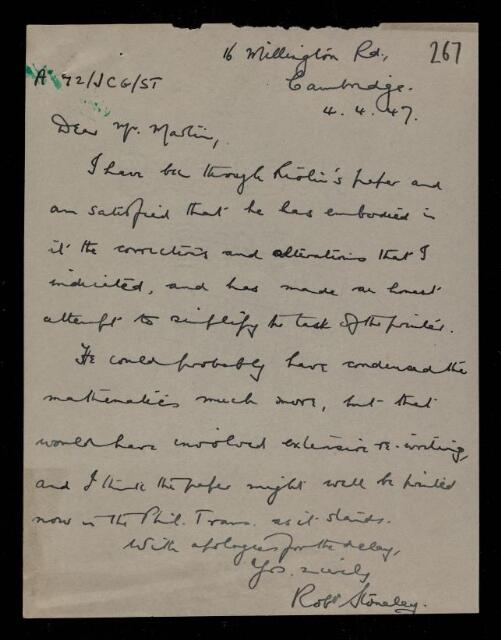 16 Millington Rd,
267
A 72/JCG/ST
Cambridge.
4. 4. 47.
Dear Mr. Martin,
I have been through 's paper and
am satisfied that he has embodied in
it the corrections and alterations that I
indicated, and has made an honest
attempt to simplify the task of the printer.
He could probably have condensed the
mathematics much more, but that
would have involved extensive re-writing,
and I think the paper might well be printed
now in the Phil. Trans. as it stands.
With apologies for the delay,
Yrs. sincerely
Robt Stoneley.